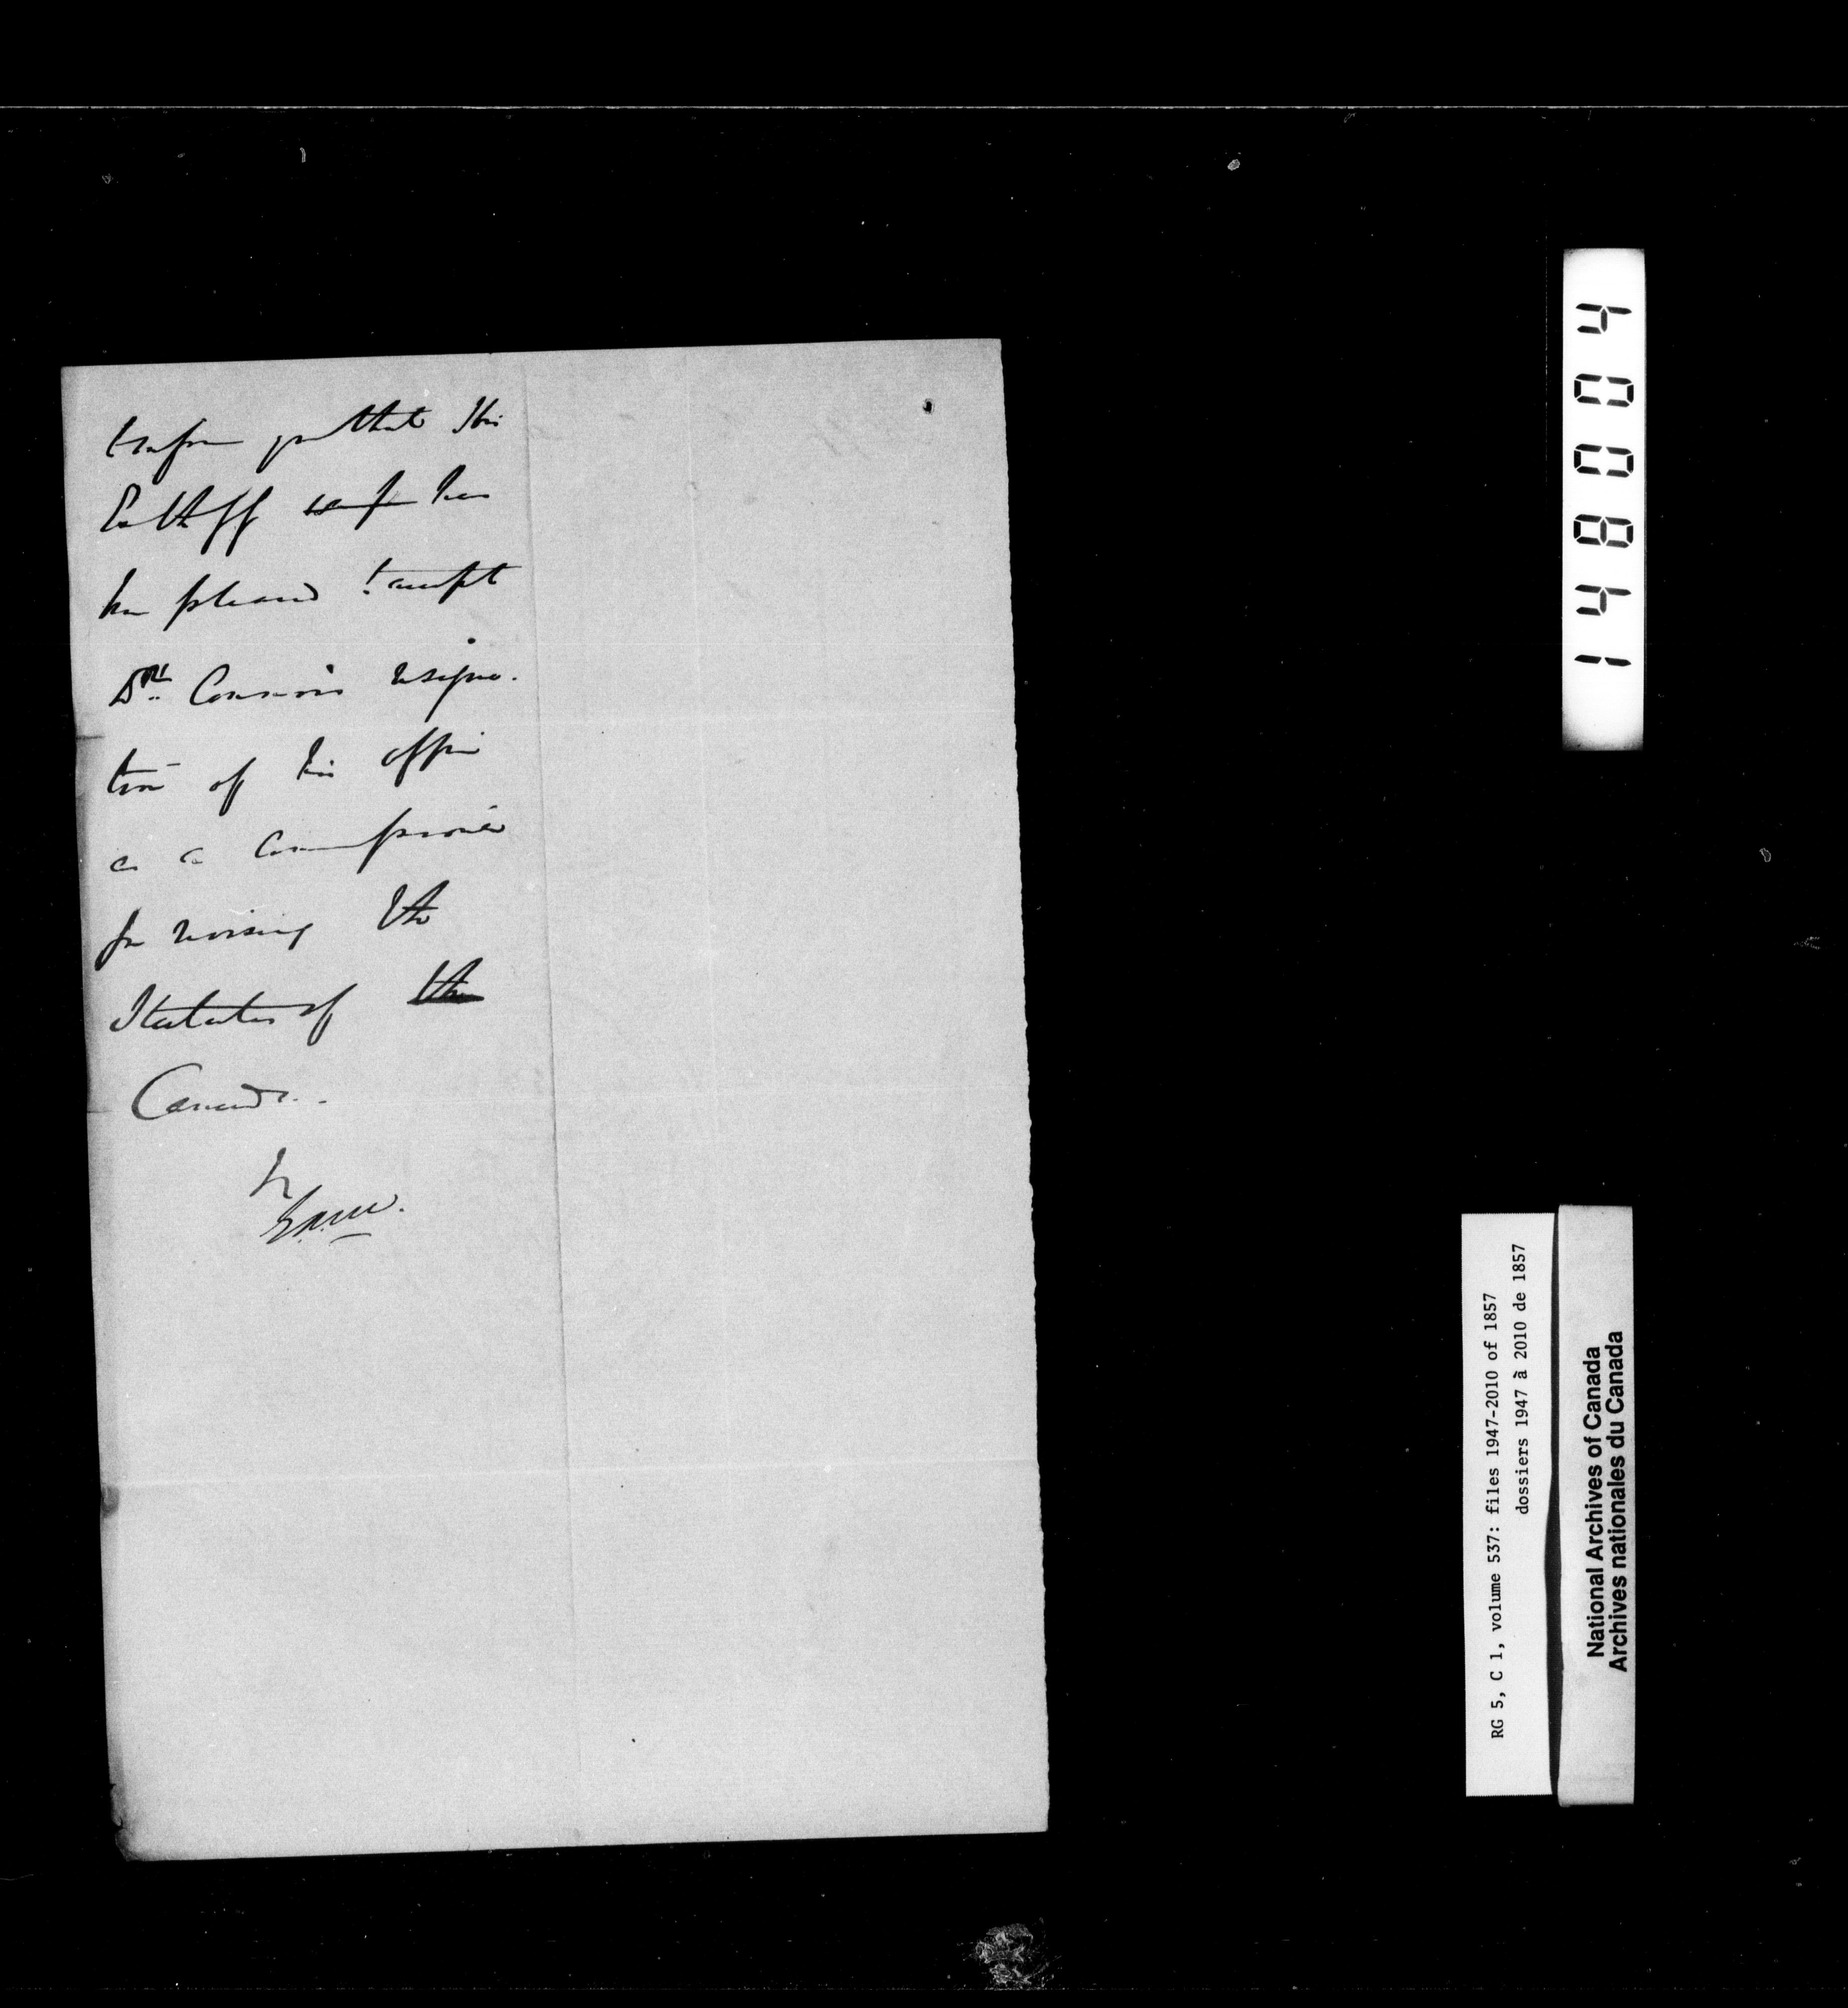 to inform you that His
Ex the
been pleased to accept
Dr. Connor's resigna-
tion of his office
as a Commissioner
for revising the
Statutes of the
Canada.
400841
RG 5, C 1, volume 537: files 1947-2010 of 1857
dossiers 1947 à 2010 de 1857
National Archives of Canada
Archives nationales du Canada